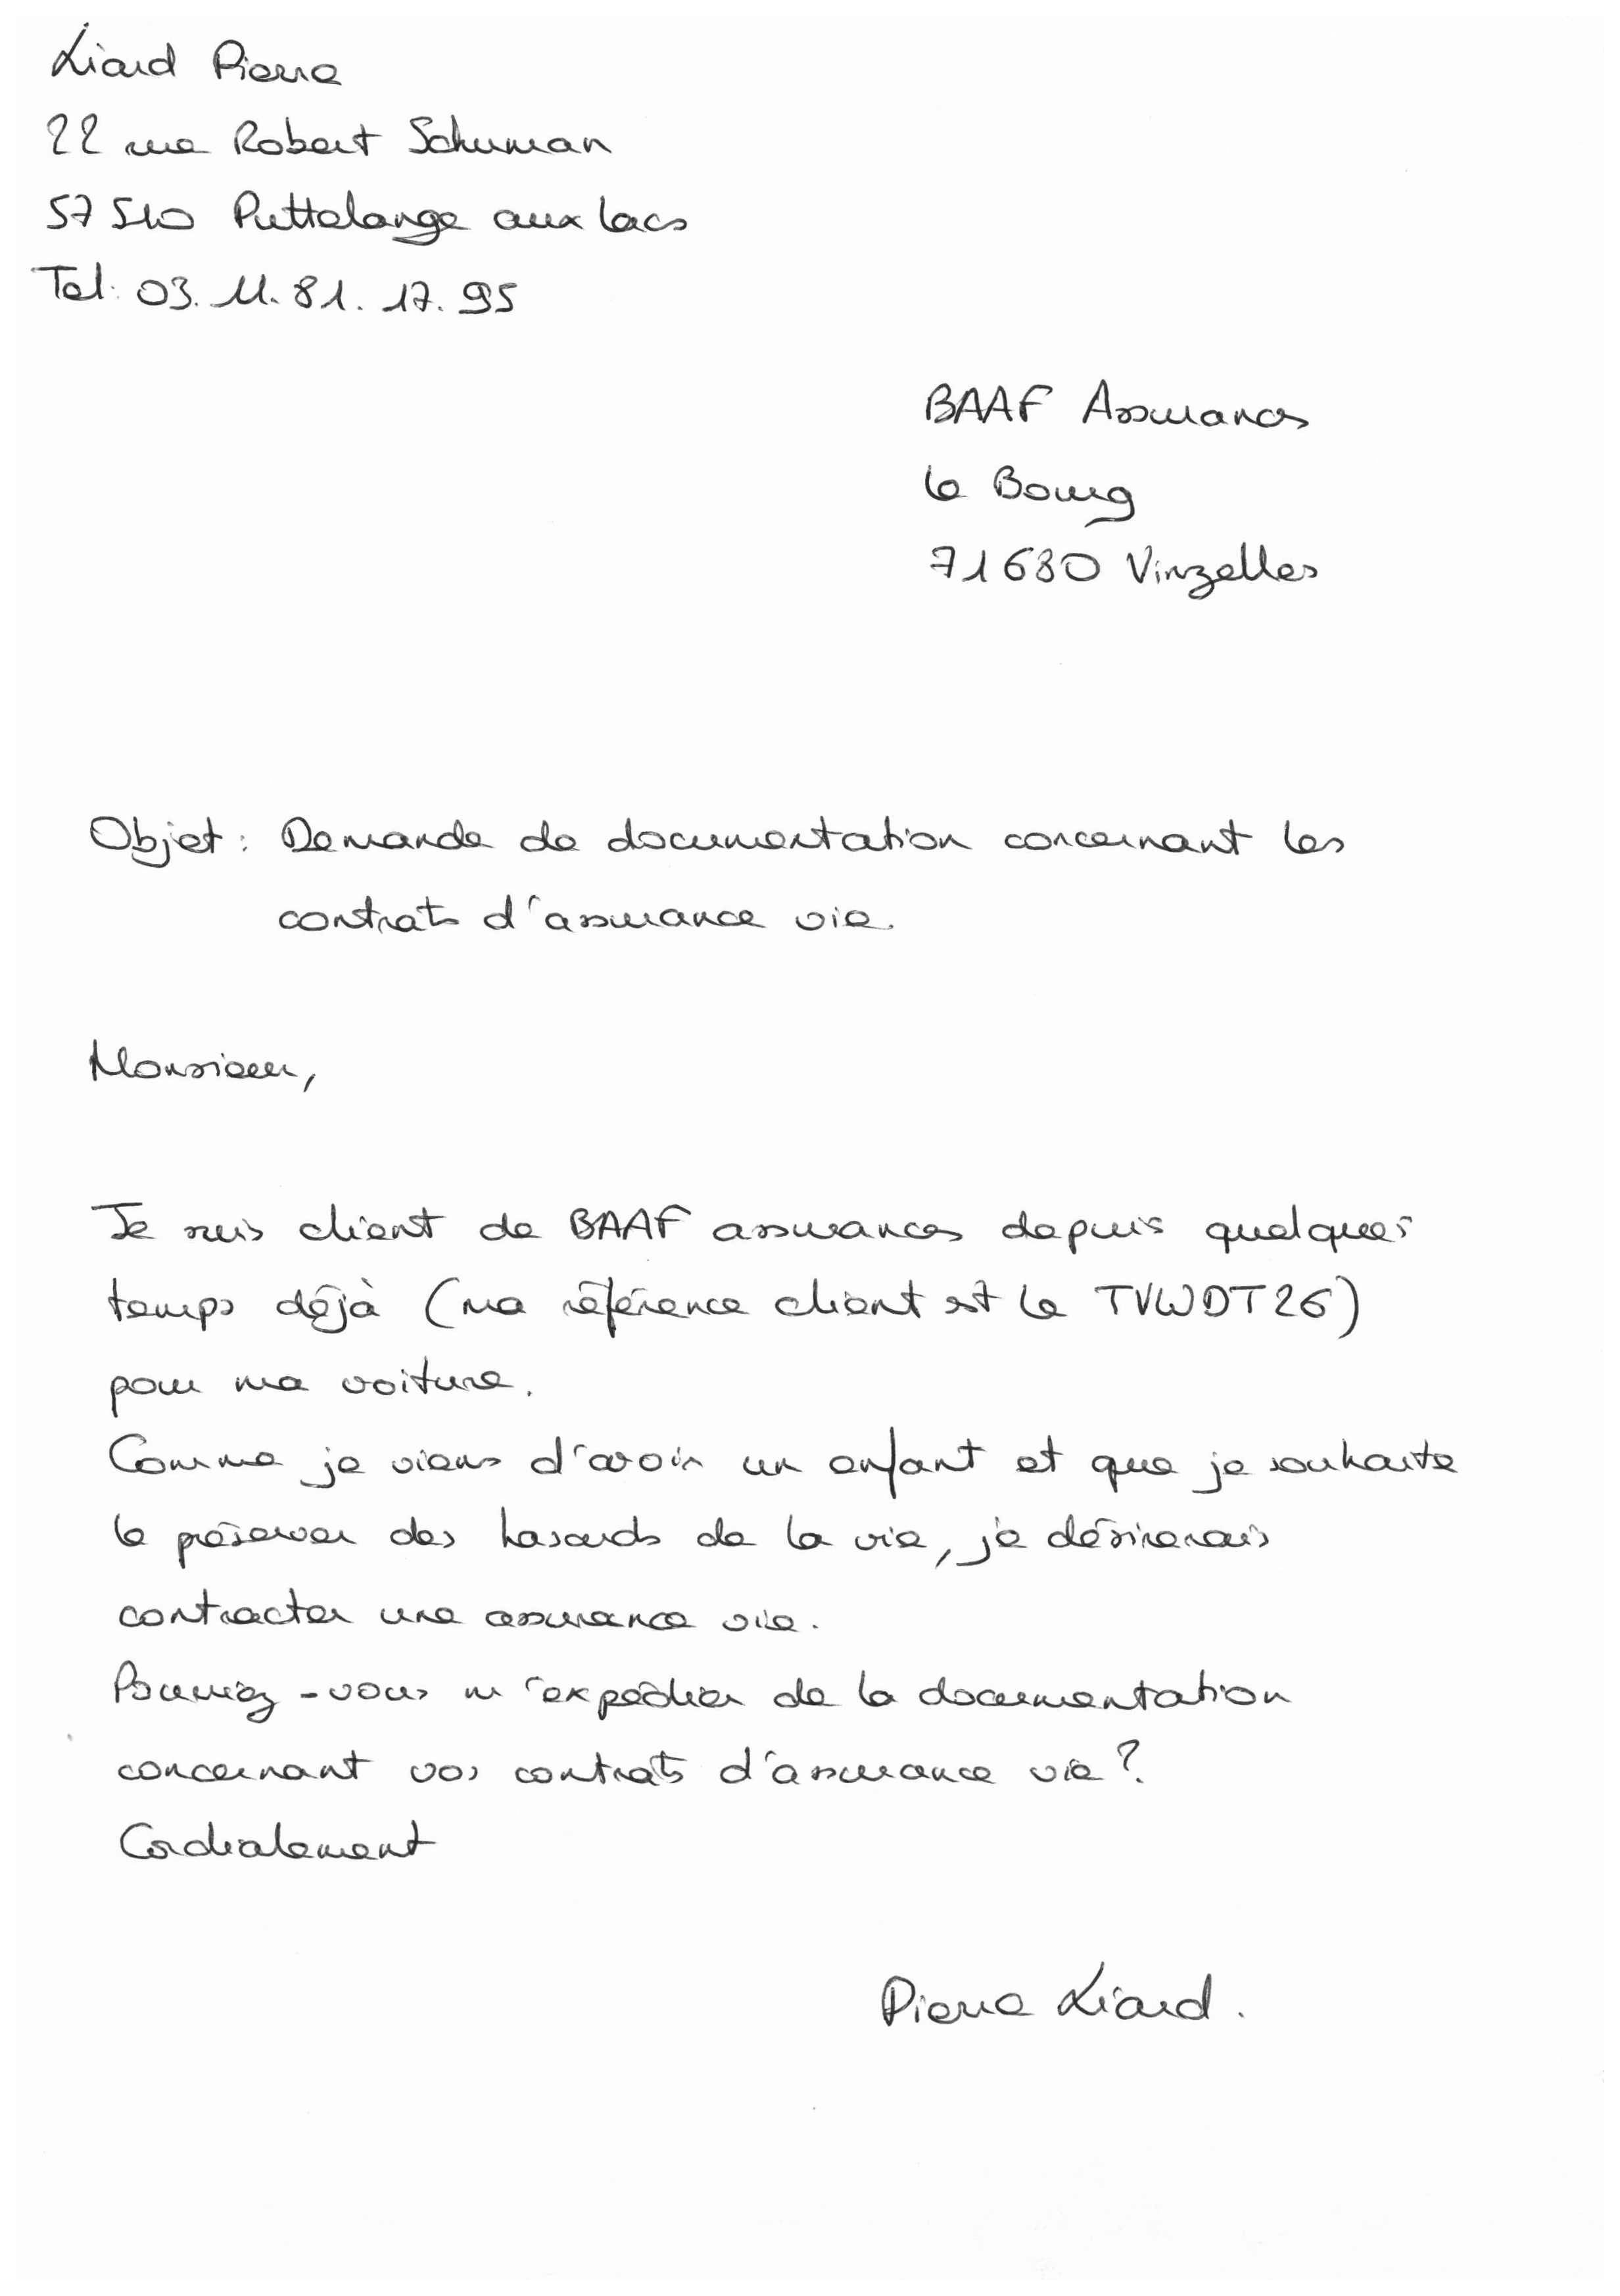 Liard Pierre
22 rue Robert Schuman
57510 Puttelange aux lacs
Tel: 03.11.81.17.95
BAAF Assurances
le Bourg
71680 Vinzelles
Objet: Demande de documentation concernant les
contrats d'assurance vie.
Monsieur,
Je suis client de BAAF assurances depuis quelques
temps déjà (ma référence client est le TVWDT26)
pour ma voiture.
Comme je viens d'avoir un enfant et que je souhaite
le préserver des hasards de la vie, je désirerais
contracter une assurance vie.
Pourriez-vous m'expédier de la documentation
concernant vos contrats d'assurance vie?
Cordialement
Pierre Liard.